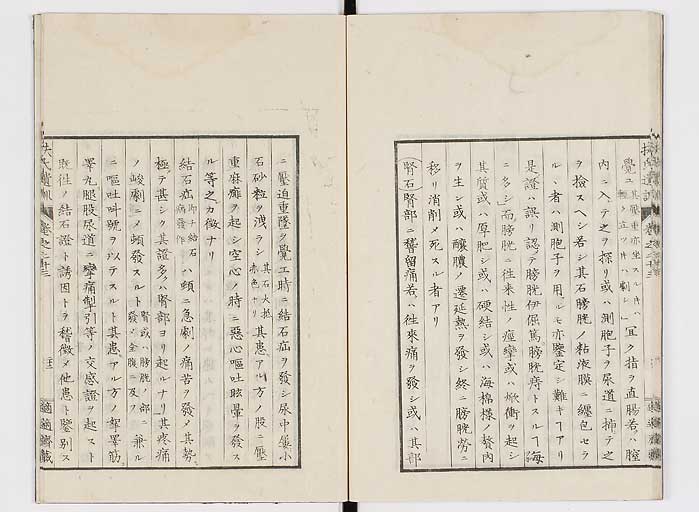 覺ユ其壓重亦坐スルキハ輕ク立ツキハ劇シ宜ク指ヲ直腸若ハ腟
内ニ入テ之ヲ探リ或ハ測胞子ヲ尿道ニ插テ之
ヲ檢スヘシ若シ其石膀胱ノ粘液膜ニ纏包セラ
ルヽ者ハ測胞子ヲ用ルモ亦鑒定シ難キヿアリ
是證ハ誤リ認テ膀胱伊倔篤膀胱痔トスルヿ毎
ニ多シ而膀胱ニ往来性ノ痙攣或ハ焮衝ヲ起シ
其質或ハ厚肥シ或ハ硬結シ或ハ海棉樣ノ贅肉
ヲ生シ或ハ釀膿ノ遷延熱ヲ發シ終ニ膀胱勞ニ
移リ消削メ死スル者アリ
腎石腎部ニ稽留痛若ハ往来痛ヲ發シ或ハ其部
ニ壓迫重墜ヲ覺エ時ニ結石疝ヲ發シ尿中鹽小
石砂粒ヲ洩ラシ其石大抵赤色ナリ其患アル方ノ股ニ壓
重麻痺ヲ起シ空心ノ時ニ惡心嘔吐眩暈ヲ發ス
ル等之カ徴ナリ
結石疝即チ結石病發作ハ頓ニ急劇ノ痛苦ヲ發メ其勢
極テ甚シク其證多クハ腎部ヨリ起ルナリ其疼痛
ノ峻劇ニメ頓發スルト腎或ハ膀胱ノ部ニ發メ全腹ニ及フ兼ル
ニ嘔吐呌號ヲ以テスルト其患アル方ノ提睾筋
睾丸腿股尿道ニ攣痛掣引等ノ交感證ヲ起スト
既往ノ結石證ト誘因トヲ稽徴メ他患ト鑒別ス
扶氏遺訓
卷之十三